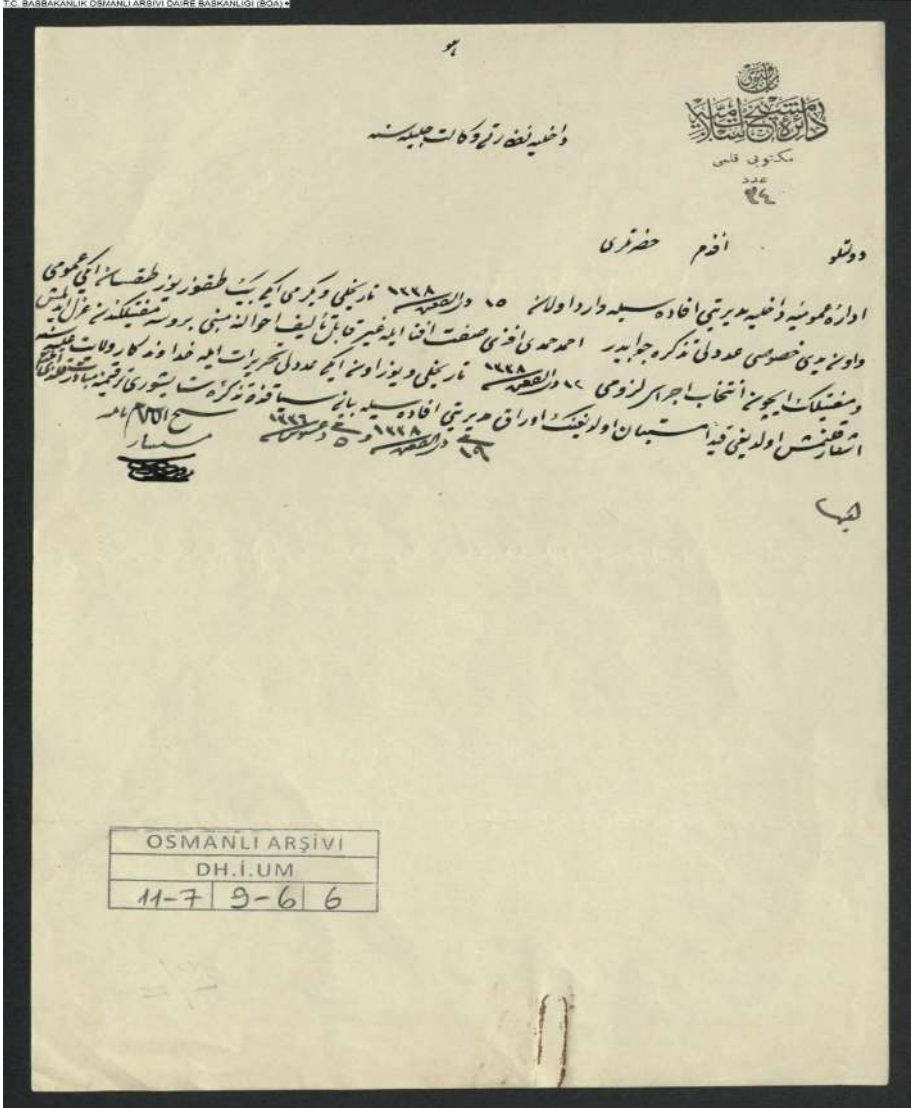 T.C. BAŞBAKANLIK OSMANLI ARŞİVİ DAİRE BAŞKANLIĞI (BOA)
هو
دائرهٔ مشيخت اسلاميه
مكتوبی قلمی
عدد
داخليه نظارتی وكالت جليله‌سنه
دولتلو افندم حضرتلری
اداره عموميهٔ داخليه مديريتی افاده‌سيله وارد اولان ١٥ ذی القعده ١٣٣٨ تاريخلی ويكرمی ايكی بيك طقوز يوز طقسان ايكی عمومی
واون يدی خصوصی عددلی تذكره جوابيدر احمد حمدی افندی صفت افتا ايله غير قابل تأليف احوالنه مبنی بروسه مفتيلكندن عزل ايدلمش
ومفتيلك ايچون انتخاب اجراسی لزومی ١٢ ذی القعده ١٣٣٨ تاريخلی ويوز اون ايكی عددلی تحريرات ايله خداوندكار ولايت جليله‌سنه
اشعار قلنمش اولديغی قيداً مستبان اولديغنك اوراق مديريتی افاده‌سيله بيانی سياقنده تذكرهٔ ثناوری ترقيمنه مبادرت قلندی افندم
١٩ ذی القعده ١٣٣٨ و ٥ اغستوس ١٣٣٦
شيخ الاسلام نامنه
مستشار
OSMANLI ARŞİVİ
DH.İ.UM
11-7 9-6 6